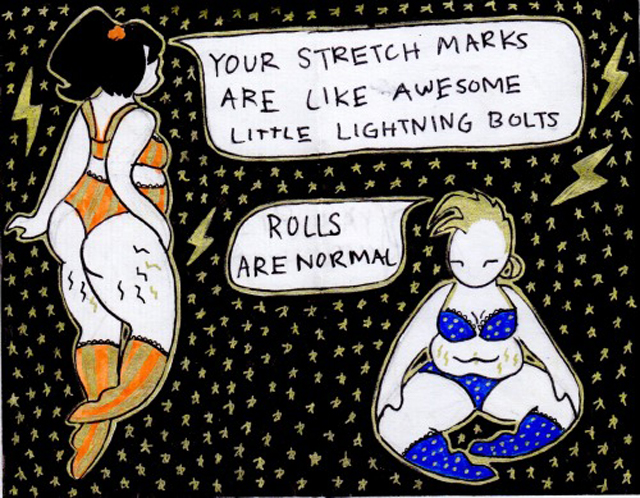 YOUR STRETCH MARKS
ARE LIKE AWESOME
LITTLE LIGHTNING BOLTS
ROLLS
ARE NORMAL